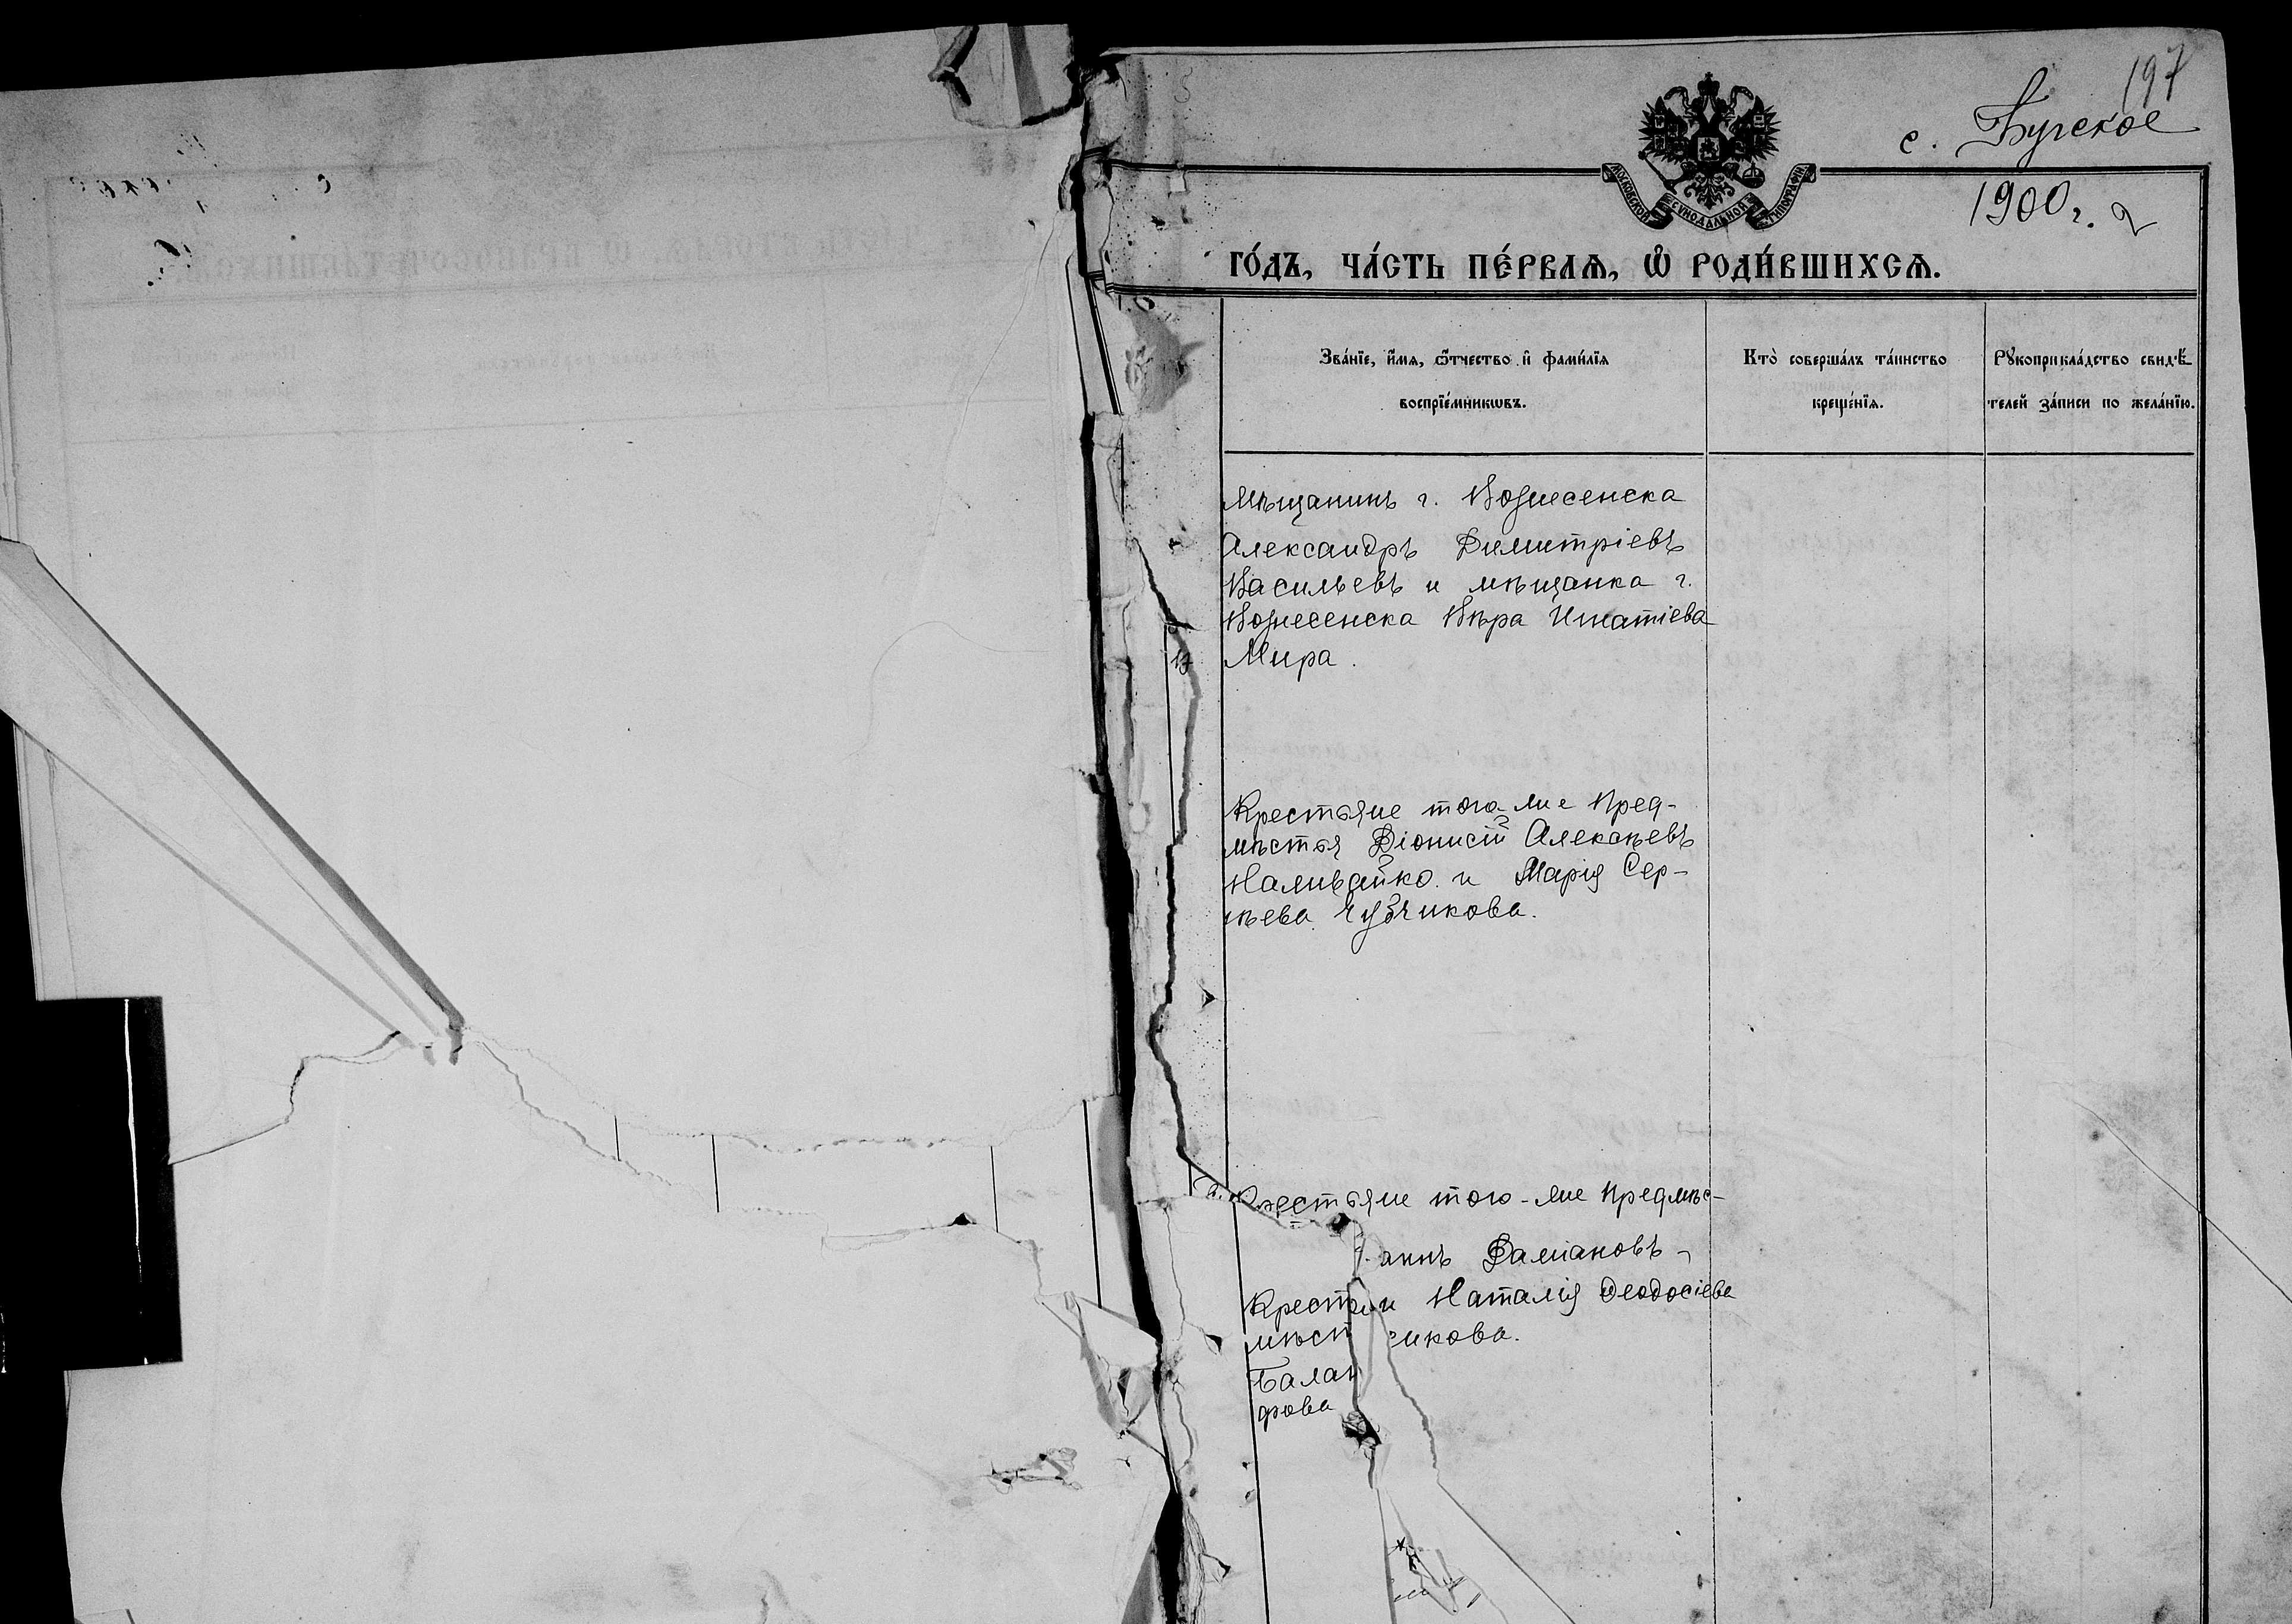 197
с. Бугское
1900 г. 2
МОСКОВСКОЙ СѴНОДАЛЬНОЙ ТИПОГРАФІИ
ГО́ДЪ, ЧА́СТЬ ПЕ́РВАѦ, Ѽ РОДИ́ВШИХСѦ.
Зва́нїе, и҆́мѧ, ѻ҆́тчество и҆ фами́лїѧ
воспрїе́мникѡвъ.
Кто̀ соверша́лъ та́инство
креще́нїѧ.
Рꙋкоприкла́дство свидѣ́-
телей за́писи по жела́нїю.
Мѣщанинъ г. Вознесенска
Александръ Димитріевъ
Васильевъ и мѣщанка г.
Вознесенска Вѣра Игнатіева
Мира.
Крестьяне того-же Пред-
мѣстья Діонисій Алексѣевъ
Наливайко и Марія Сер-
гѣева Чубчикова.
Крестьяне того-же Предмѣс-
аннъ Даміановъ
Крест и Наталія Ѳеодосіева
мѣст чикова.
Балан
рова